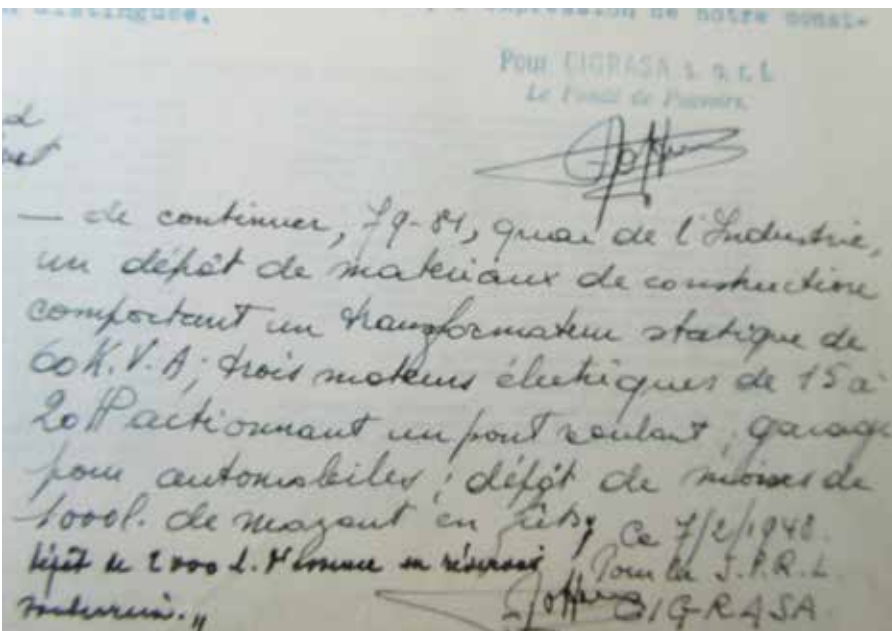 distinguée. expression de notre consi-
Pour CIGRASA s. p. r. l.
Le Fondé de Pouvoirs.
— de continuer, 79-81, quai de l'Industrie,
un dépôt de matériaux de construction
comportant un transformateur statique de
60 K.V.A; trois moteurs électriques de 15 à
20 HP actionnant un pont roulant; garage
pour automobiles; dépôt de moins de
1000 l. de mazout en fûts; Ce 7/2/1948.
dépôt de 2000 l. d'essence en réservoir Pour la S.P.R.L.
souterrain.,, CIGRASA